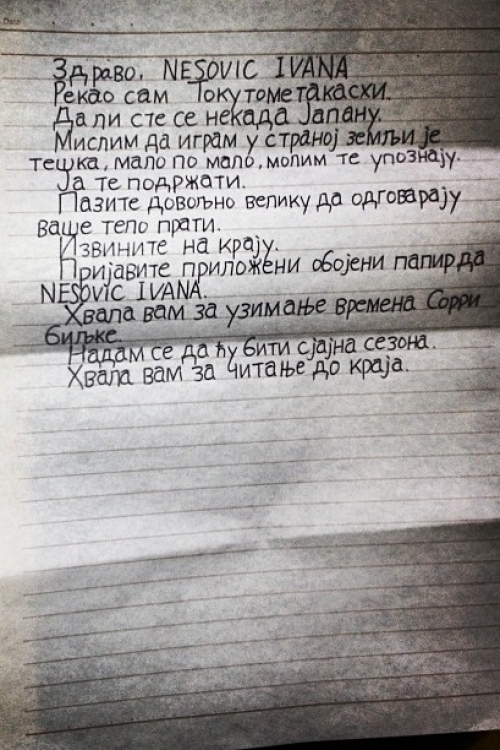 Здраво. NESOVIC IVANA
Рекао сам Токутометакасхи.
Да ли сте се некада Јапану.
Мислим да играм у страној земљи је
тешка, мало по мало, молим те упознају.
Ја те подржати.
Пазите довољно велику да одговарају
ваше тело прати.
Извините на крају.
Пријавите приложени обојени папир да
NESOVIC IVANA.
Хвала вам за узимање времена Сорри
биљке.
Надам се да ћу бити сјајна сезона.
Хвала вам за читање до краја.